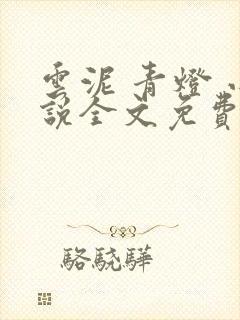 雲泥 青燈 小
說全文免費
駱驍驊